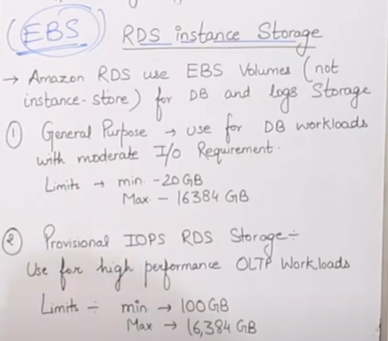 (EBS) RDS instance Storage
→ Amazon RDS use EBS Volumes (not
instance-store) for DB and logs Storage
① General Purpose → use for DB workloads
with moderate I/O Requirement.
Limits → min - 20 GB
Max - 16384 GB
② Provisional IOPS RDS Storage ÷
Use for high performance OLTP Workloads
Limits ÷ min → 100 GB
Max → 16,384 GB